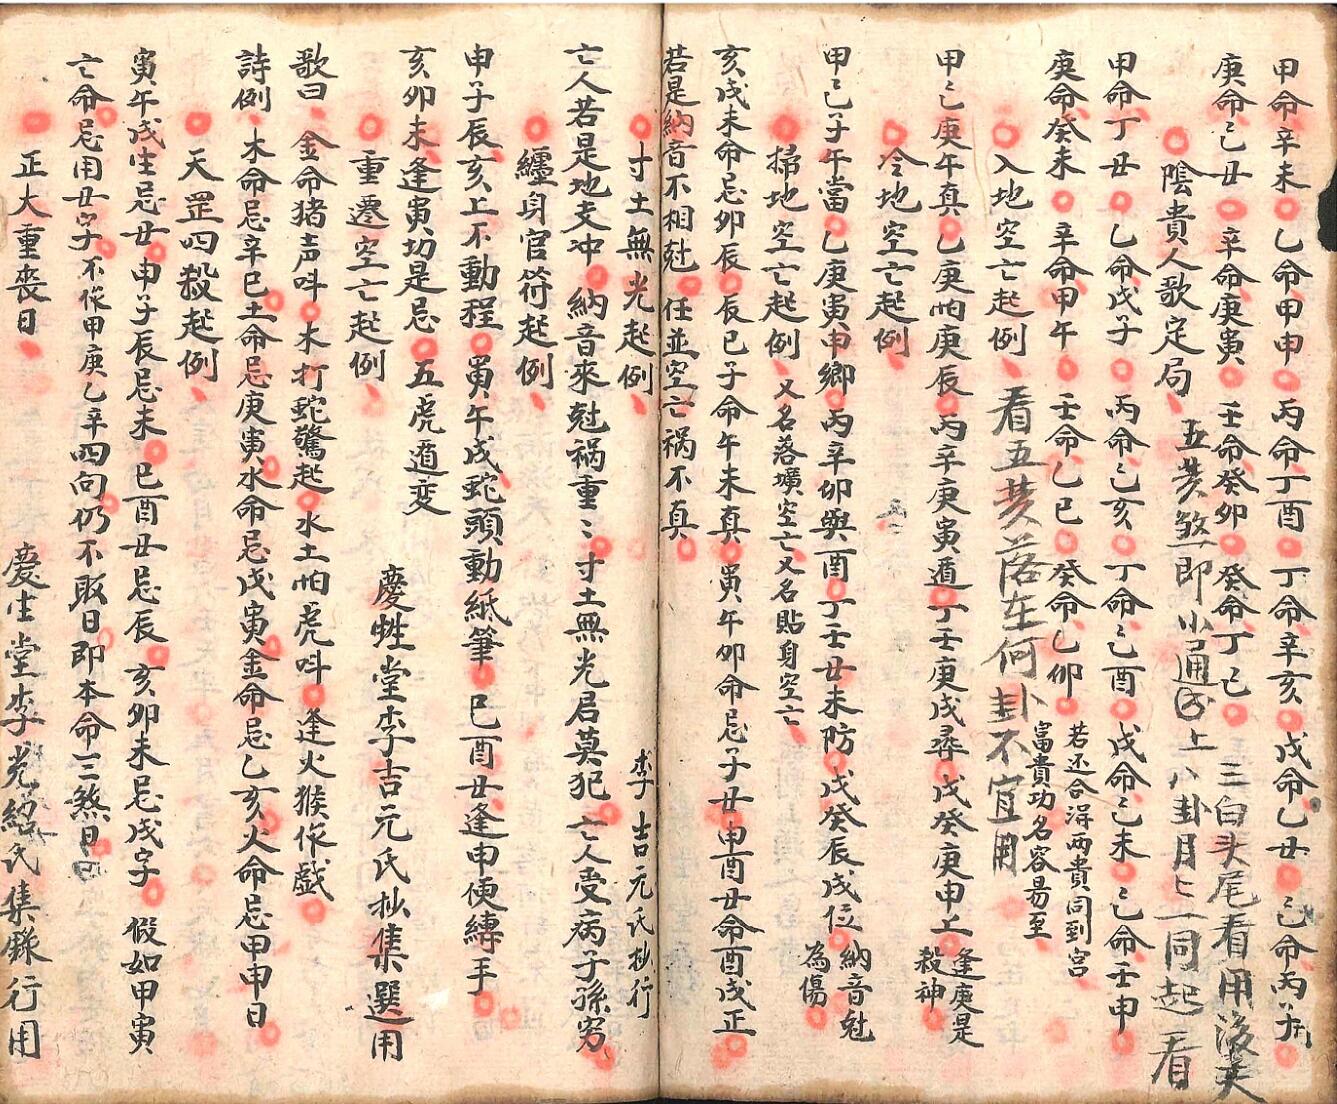 甲命辛未乙命甲申丙命丁酉丁命辛亥戊命乙丑己命丙子
庚命己丑辛命庚寅壬命癸卯癸命丁巳三白头尾看用後天
陰貴人歌定局五黄煞即小通同上八卦月上一同起看
甲命丁丑乙命戊子丙命己亥丁命己酉戊命己未己命壬申
庚命癸未辛命甲午壬命乙巳癸命乙卯若还合得两貴同到宫
富貴功名容易至
入地空亡起例看五黄落在何卦不宜用
甲己庚午真乙庚怕庚辰丙辛庚寅遁丁壬庚戌尋戊癸庚申上逢庚是
殺神
冷地空亡起例
甲己子午當乙庚寅申鄉丙辛卯與酉丁壬丑未防戊癸辰戌位納音尅
為傷
掃地空亡起例又名落壙空亡又名貼身空亡
亥戌未命忌卯辰辰巳子命午未真寅午卯命忌子丑申酉丑命酉戌正
若是納音不相尅任並空亡祸不真
寸土無光起例李吉元氏抄行
亡人若是地支冲納音來尅祸重重寸土無光君莫犯亡人受病子孫窮
纏身官符起例
申子辰亥上不動程寅午戌蛇頭動紙筆巳酉丑逢申便縛手
亥卯未逢寅切是忌五虎遁变
重遷空亡起例慶甡堂李吉元氏抄集選用
歌曰金命猪声叫木打蛇驚起水土怕虎叫逢火猴作戲
詩例木命忌辛巳土命忌庚寅水命忌戊寅金命忌乙亥火命忌甲申日
天罡四殺起例
寅午戌生忌丑申子辰忌未巳酉丑忌辰亥卯未忌戌字假如甲寅
亡命忌用丑字不作甲庚乙辛四向仍不取日即本命三煞日
正大重喪日慶生堂李光紹氏集錄行用